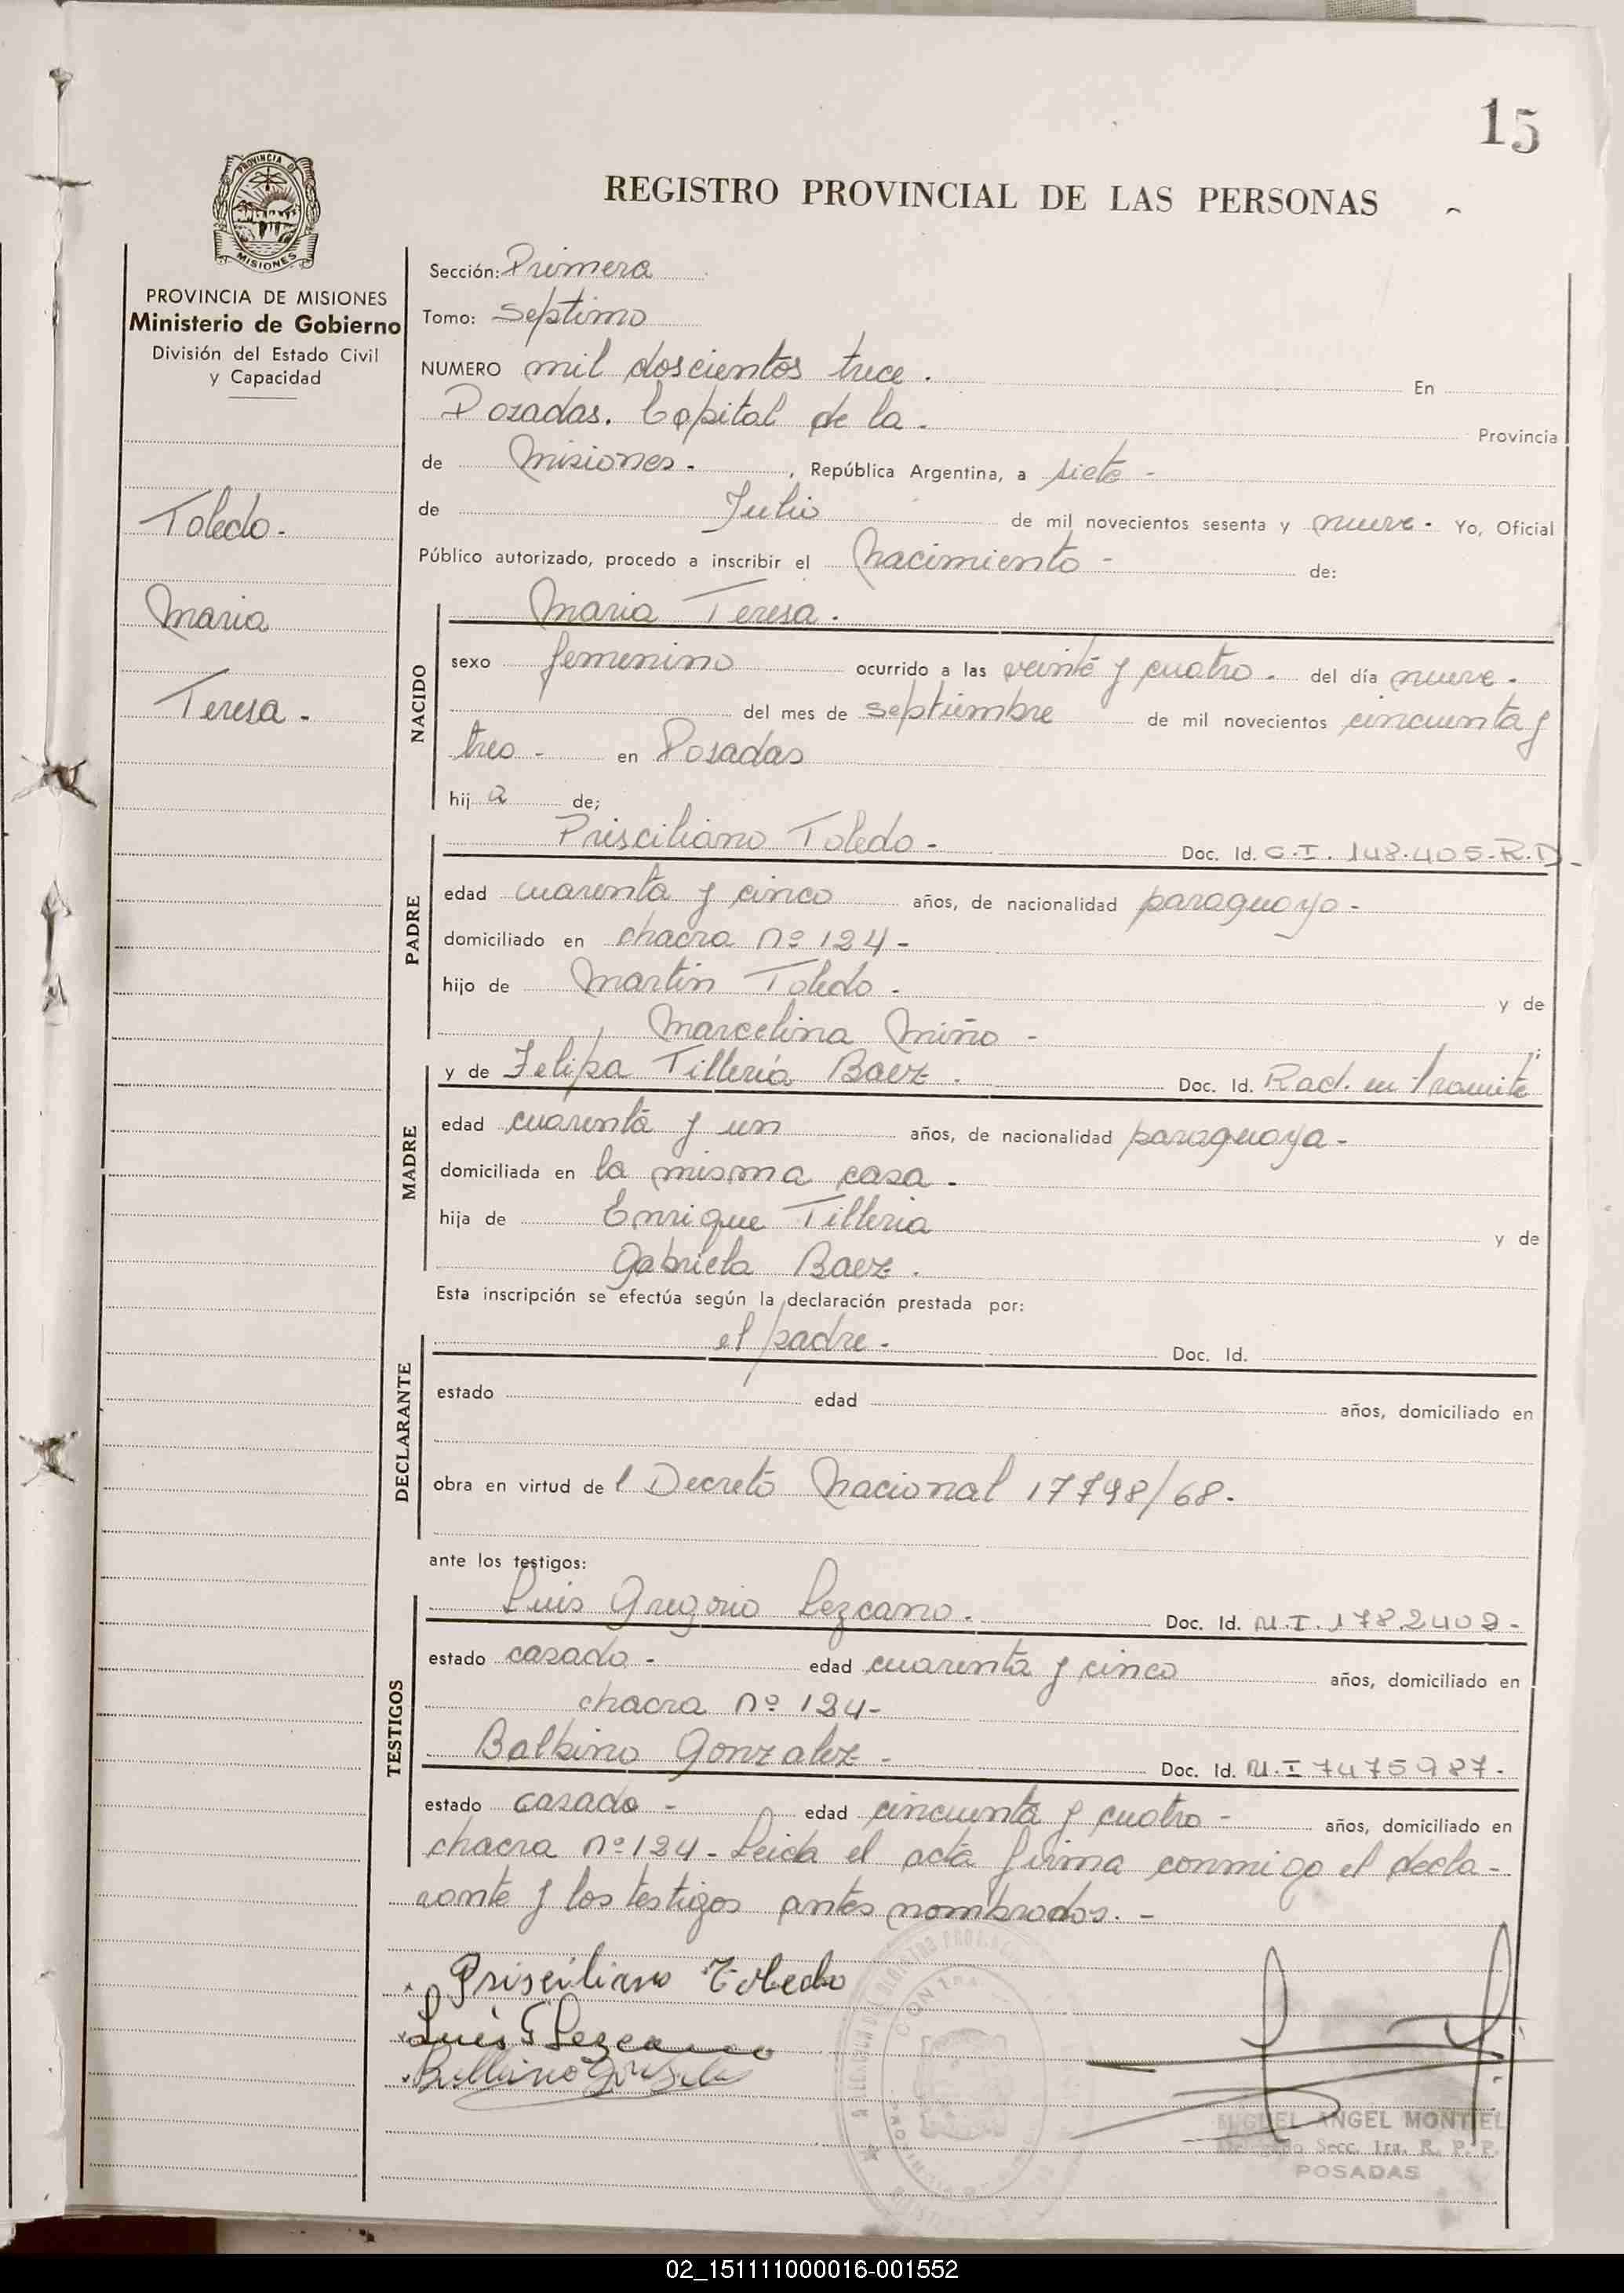 15
PROVINCIA DE
MISIONES
REGISTRO PROVINCIAL DE LAS PERSONAS
PROVINCIA DE MISIONES
Ministerio de Gobierno
División del Estado Civil
y Capacidad
Toledo.
Maria
Teresa.
Sección: Primera
Tomo: Septimo
NUMERO mil doscientos trece. En
Posadas. Capital de la. Provincia
de Misiones-, República Argentina, a siete-
de Julio de mil novecientos sesenta y nueve. Yo, Oficial
Público autorizado, procedo a inscribir el Nacimiento- de:
NACIDO
Maria Teresa.
sexo femenino ocurrido a las veinte y cuatro. del día nueve.
del mes de septiembre de mil novecientos cincuenta y
tres- en Posadas
hij a de;
PADRE
Prisciliano Toledo- Doc. Id. C.I. 148.405.R.D-
edad cuarenta y cinco años, de nacionalidad paraguayo-
domiciliado en chacra nº 124-
hijo de Martin Toledo- y de
Marcelina Miño-;
MADRE
y de Felipa Tilleria Baez. Doc. Id. Rad. en tramite
edad cuarenta y un años, de nacionalidad paraguaya-
domiciliada en la misma casa-
hija de Enrique Tilleria y de
Gabriela Baez.
Esta inscripción se efectúa según la declaración prestada por:
DECLARANTE
el padre- Doc. Id.
estado edad años, domiciliado en
obra en virtud de l Decreto Nacional 17798/68-
ante los testigos:
TESTIGOS
Luis Gregorio Lezcano. Doc. Id. M.I. 1782402-
estado casado- edad cuarenta y cinco años, domiciliado en
chacra nº 124-
Balbino Gonzalez- Doc. Id. M.I 7475987-
estado casado- edad cincuenta y cuatro- años, domiciliado en
chacra nº 124- Leida el acta firma conmigo el decla-
rante y los testigos antes nombrados.-
Prisciliano Toledo
Luis G Lezcano
MIGUEL ANGEL MONTIEL
Delegado Secc. 1ra. R. P. P.
POSADAS
02_151111000016-001552